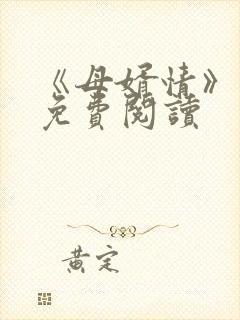 《母婿情》
免費閱讀
黄定